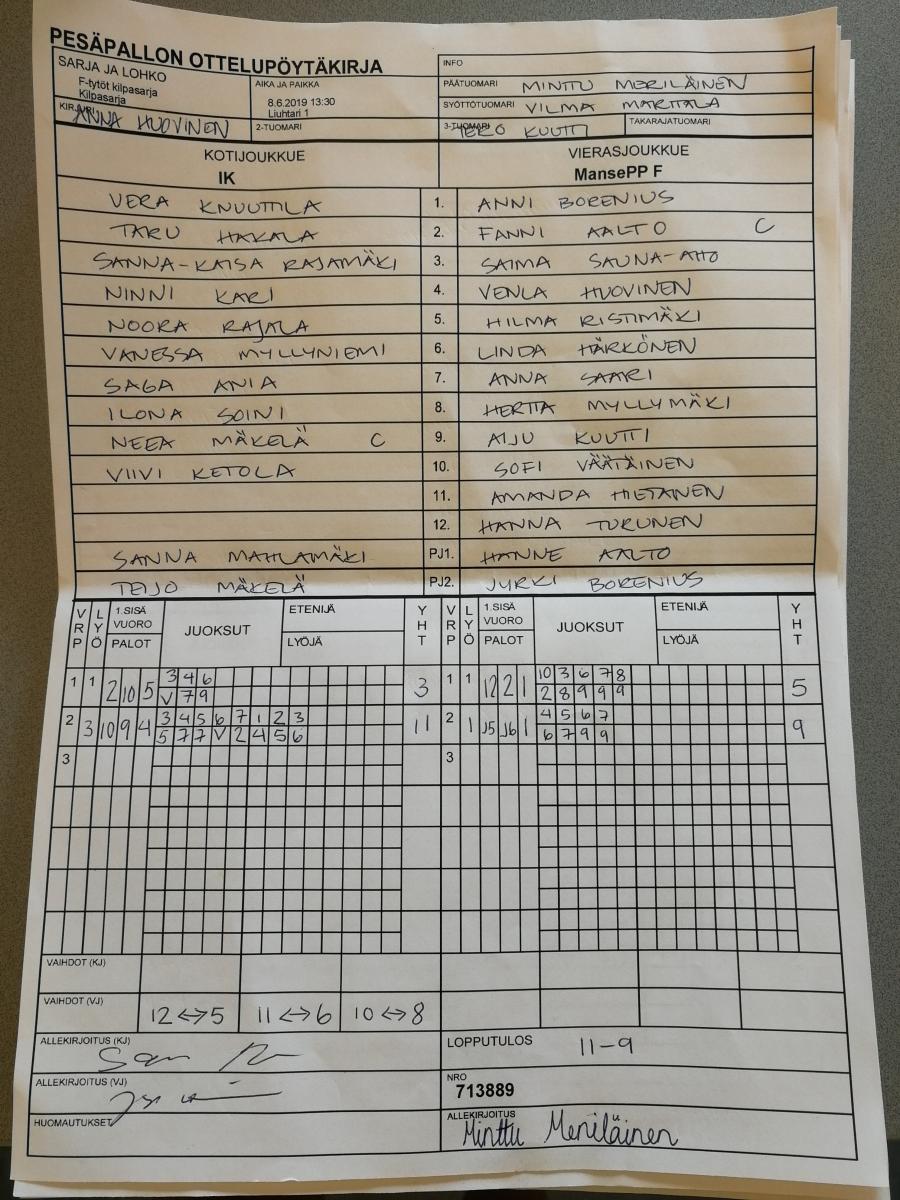 PESÄPALLON OTTELUPÖYTÄKIRJA
SARJA JA LOHKO
F-tytöt kilpasarja
Kilpasarja
AIKA JA PAIKKA
8.6.2019 13:30
Liuhtari 1
INFO
PÄÄTUOMARI MINTTU MERILÄINEN
SYÖTTÖTUOMARI VILMA MARTTALA
KIRJURI ANNA HUOVINEN
2-TUOMARI
3-TUOMARI TERO KUUTTI
TAKARAJATUOMARI
KOTIJOUKKUE VIERASJOUKKUE
IK MansePP F
VERA KNUUTTILA 1. ANNI BORENIUS
TARU HAKALA 2. FANNI AALTO C
SANNA-KAISA RAJAMÄKI 3. SAIMA SAUNA-AHO
NINNI KARI 4. VENLA HUOVINEN
NOORA RAJALA 5. HILMA RISTIMÄKI
VANESSA MYLLYNIEMI 6. LINDA HÄRKÖNEN
SAGA ANIA 7. ANNA SAARI
ILONA SOINI 8. HERTTA MYLLYMÄKI
NEEA MÄKELÄ C 9. AIJU KUUTTI
VIIVI KETOLA 10. SOFI VÄÄTÄINEN
11. AMANDA HIETANEN
12. HANNA TURUNEN
SANNA MAHLAMÄKI PJ1. HANNE AALTO
TEIJO MÄKELÄ PJ2. JYRKI BORENIUS
VRP LYÖ 1.SISÄ VUORO PALOT JUOKSUT ETENIJÄ LYÖJÄ YHT VRP LYÖ 1.SISÄ VUORO PALOT JUOKSUT ETENIJÄ LYÖJÄ YHT
1 1 2 10 5 3 4 6 3 1 1 12 2 1 10 3 6 7 8 5
V 7 9 2 8 9 9 9
2 3 10 9 4 3 4 5 6 7 1 2 3 11 2 1 15 16 1 4 5 6 7 9
5 7 7 V 2 4 5 6 6 7 9 9
3 3
VAIHDOT (KJ)
VAIHDOT (VJ) 12 <-> 5 11 <-> 6 10 <-> 8
ALLEKIRJOITUS (KJ)
LOPPUTULOS 11-9
ALLEKIRJOITUS (VJ)
NRO
713889
HUOMAUTUKSET
ALLEKIRJOITUS
Minttu Meriläinen